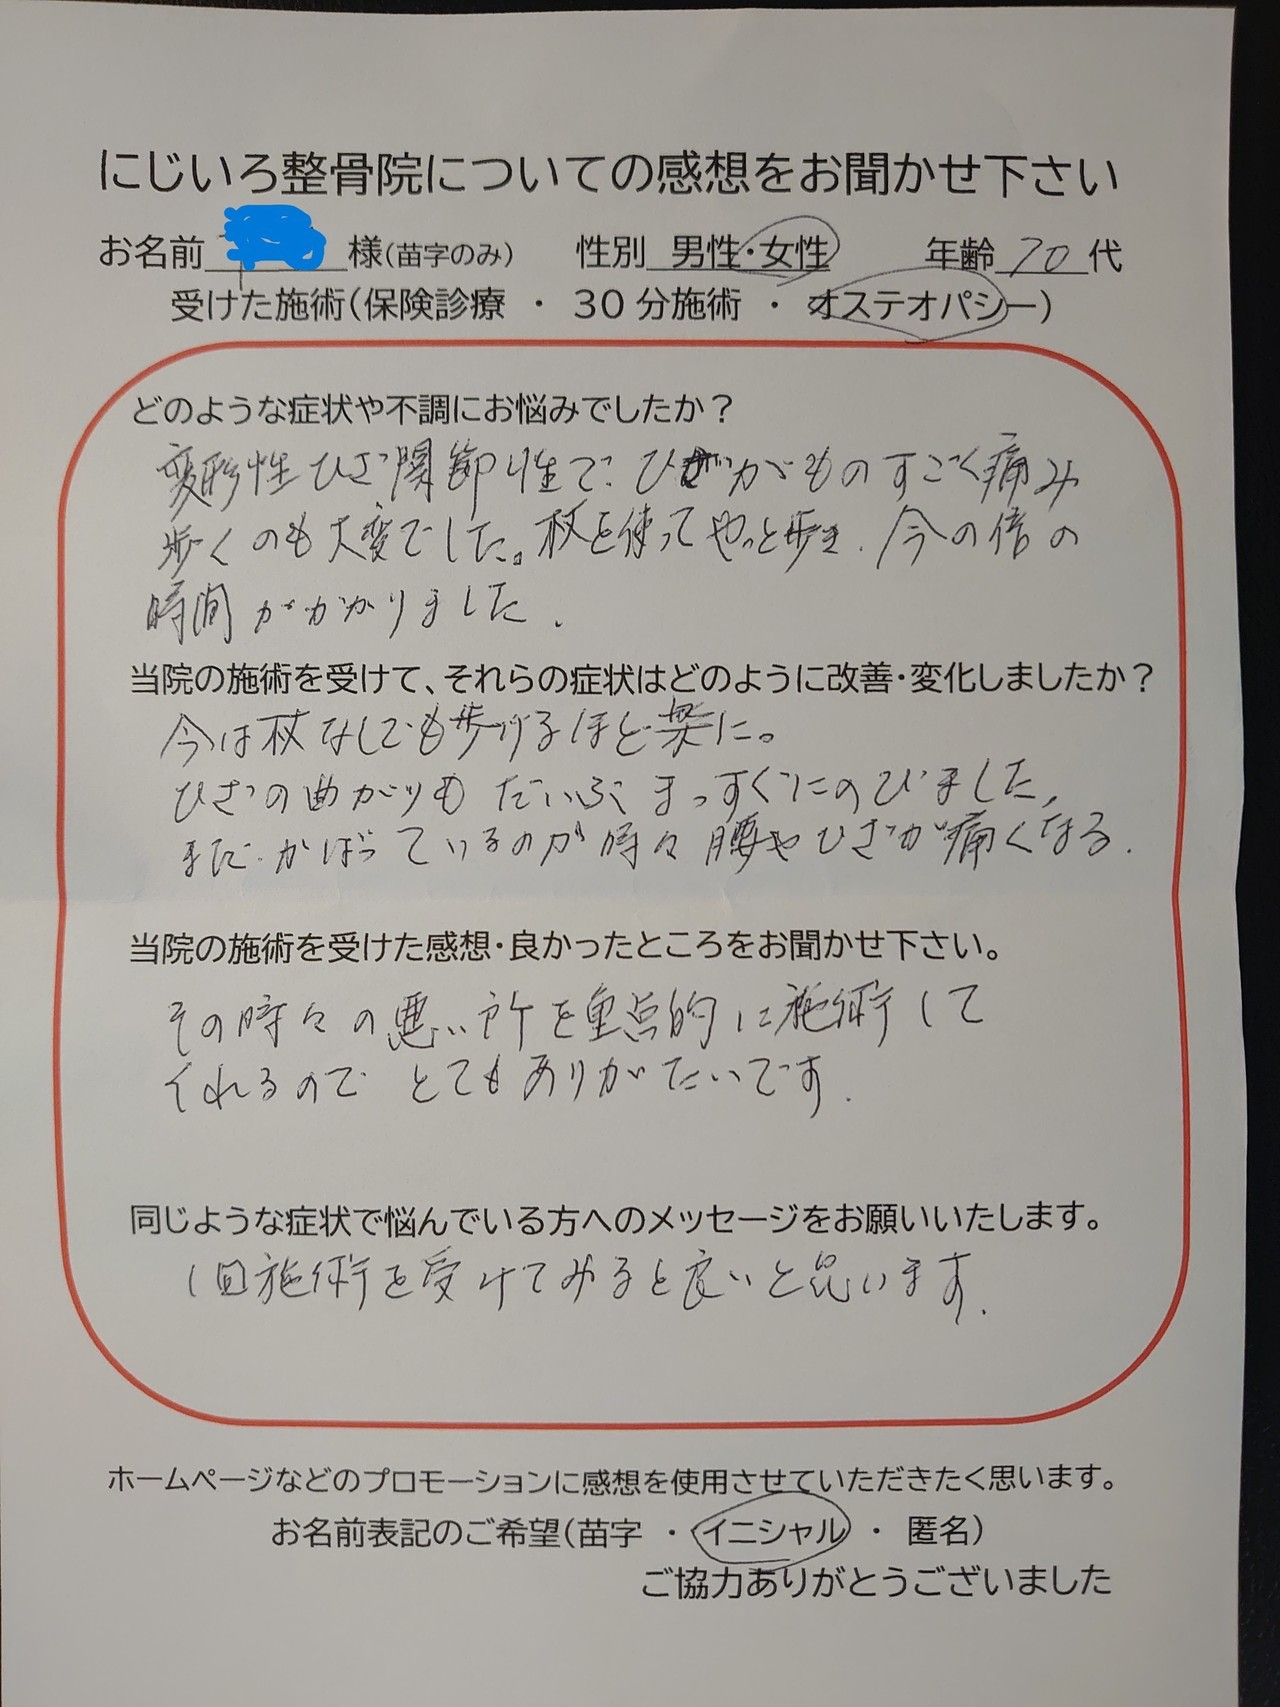 にじいろ整骨院についての感想をお聞かせ下さい
お名前 様(苗字のみ) 性別 男性・女性 年齢 70 代
受けた施術(保険診療 ・ 30分施術 ・ オステオパシー)
どのような症状や不調にお悩みでしたか？
変形性ひざ関節性で、ひざがものすごく痛み
歩くのも大変でした。杖を使ってやっと歩き、今の倍の
時間がかかりました.
当院の施術を受けて、それらの症状はどのように改善・変化しましたか？
今は杖なしでも歩けるほど楽に。
ひざの曲がりもだいぶまっすぐにのびました,
まだかばっているのが時々腰やひざが痛くなる.
当院の施術を受けた感想・良かったところをお聞かせ下さい。
その時々の悪い所を重点的に施術して
くれるのでとてもありがたいです.
同じような症状で悩んでいる方へのメッセージをお願いいたします。
1回施術を受けてみると良いと思います.
ホームページなどのプロモーションに感想を使用させていただきたく思います。
お名前表記のご希望(苗字 ・ イニシャル ・ 匿名)
ご協力ありがとうございました